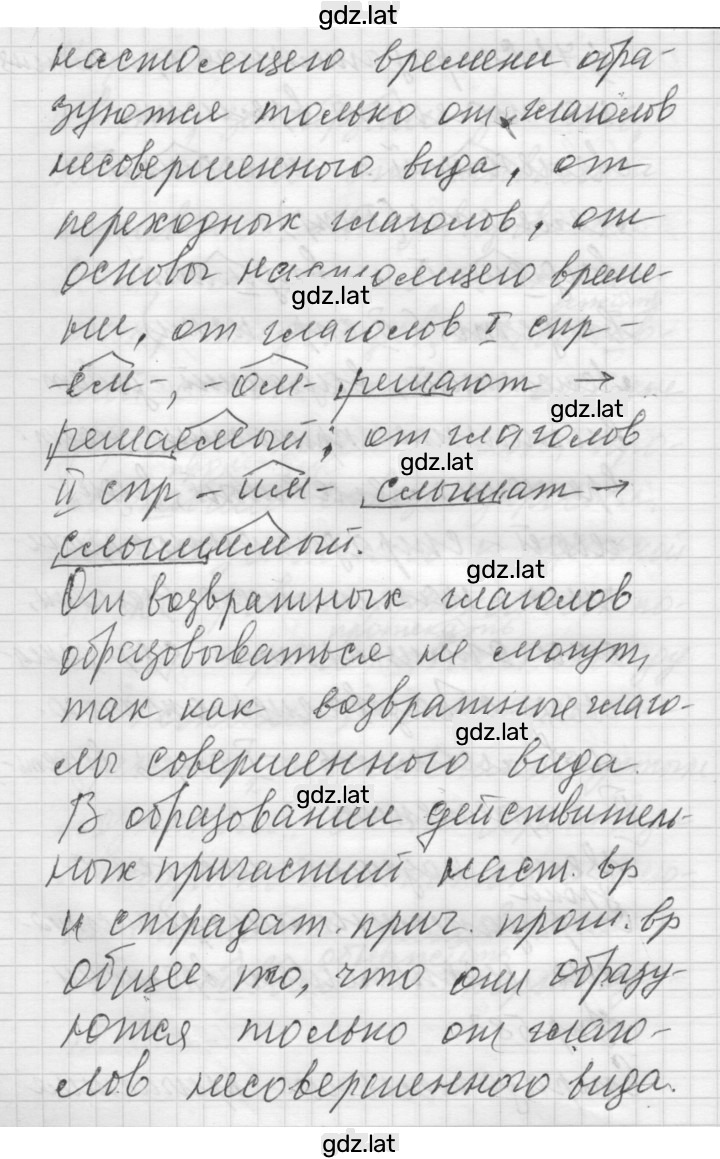 gdz.lat
настоящего времени обра-
зуются только от глаголов
несовершенного вида, от
переходных глаголов, от
основы настоящего време-
gdz.lat
ни, от глаголов I спр -
-ем-, -ом- решают →
gdz.lat
решаемый; от глаголов
gdz.lat
II спр - им- слышат →
слышимый.
gdz.lat
От возвратных глаголов
образовываться не могут,
так как возвратные глаго-
gdz.lat
лы совершенного вида.
gdz.lat
В образовании действитель-
ных причастий наст. вр
и страдат. прич. прош. вр
общее то, что они образу-
ются только от глаго-
лов несовершенного вида.
gdz.lat